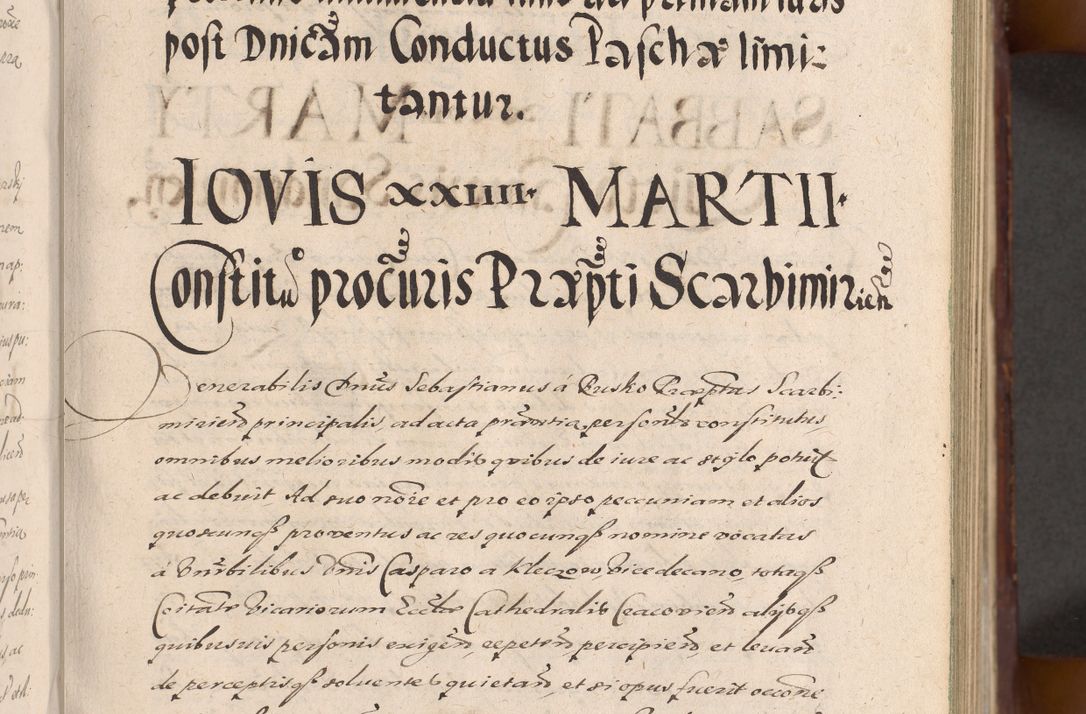 post Dnicam Conductus Paschæ limi-
tantur.
IOVIS xxiiii. MARTII.
Constitũ procuris Præpti Scarbimirien
Venerabilis Dnus Sebastianus á Rusko Præptus Scarbi:
mirien principalis, ad acta præsentia, personlr constitutus,
omnibus melioribus modis quibus de iure ac stylo potuit
ac debuit Ad suo noie et pro eo ipso peccuniam et alios
quoscunqß proventus ac res quocunqß nomine vocatas
á Vnrbilibus Dnis Casparo a Kleczow, Vicedecano, totaqß
Coitate Vicariorum Ecclæ Cathedralis Cracovien alijsqß
quibusuis personis exigend, repetend, percipiend, et leuand
de perceptisqß soluentes quietand, et si opus fuerit occone